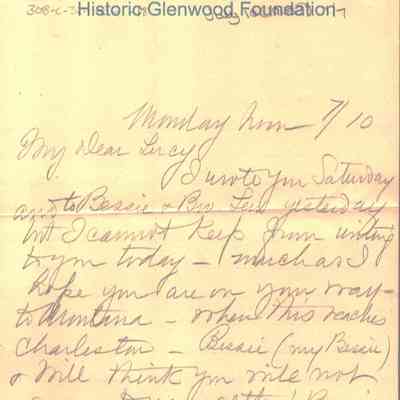 Historic Glenwood Foundation
Monday Noon 7/10
My Dear Lucy
I wrote you Saturday
and to Bessie & Bro yesterday
but I cannot keep from writing
to you today - much as I
hope you are on your way
to Montana - when this reaches
Charleston - Bessie (my Bessie)
& Will think you will not